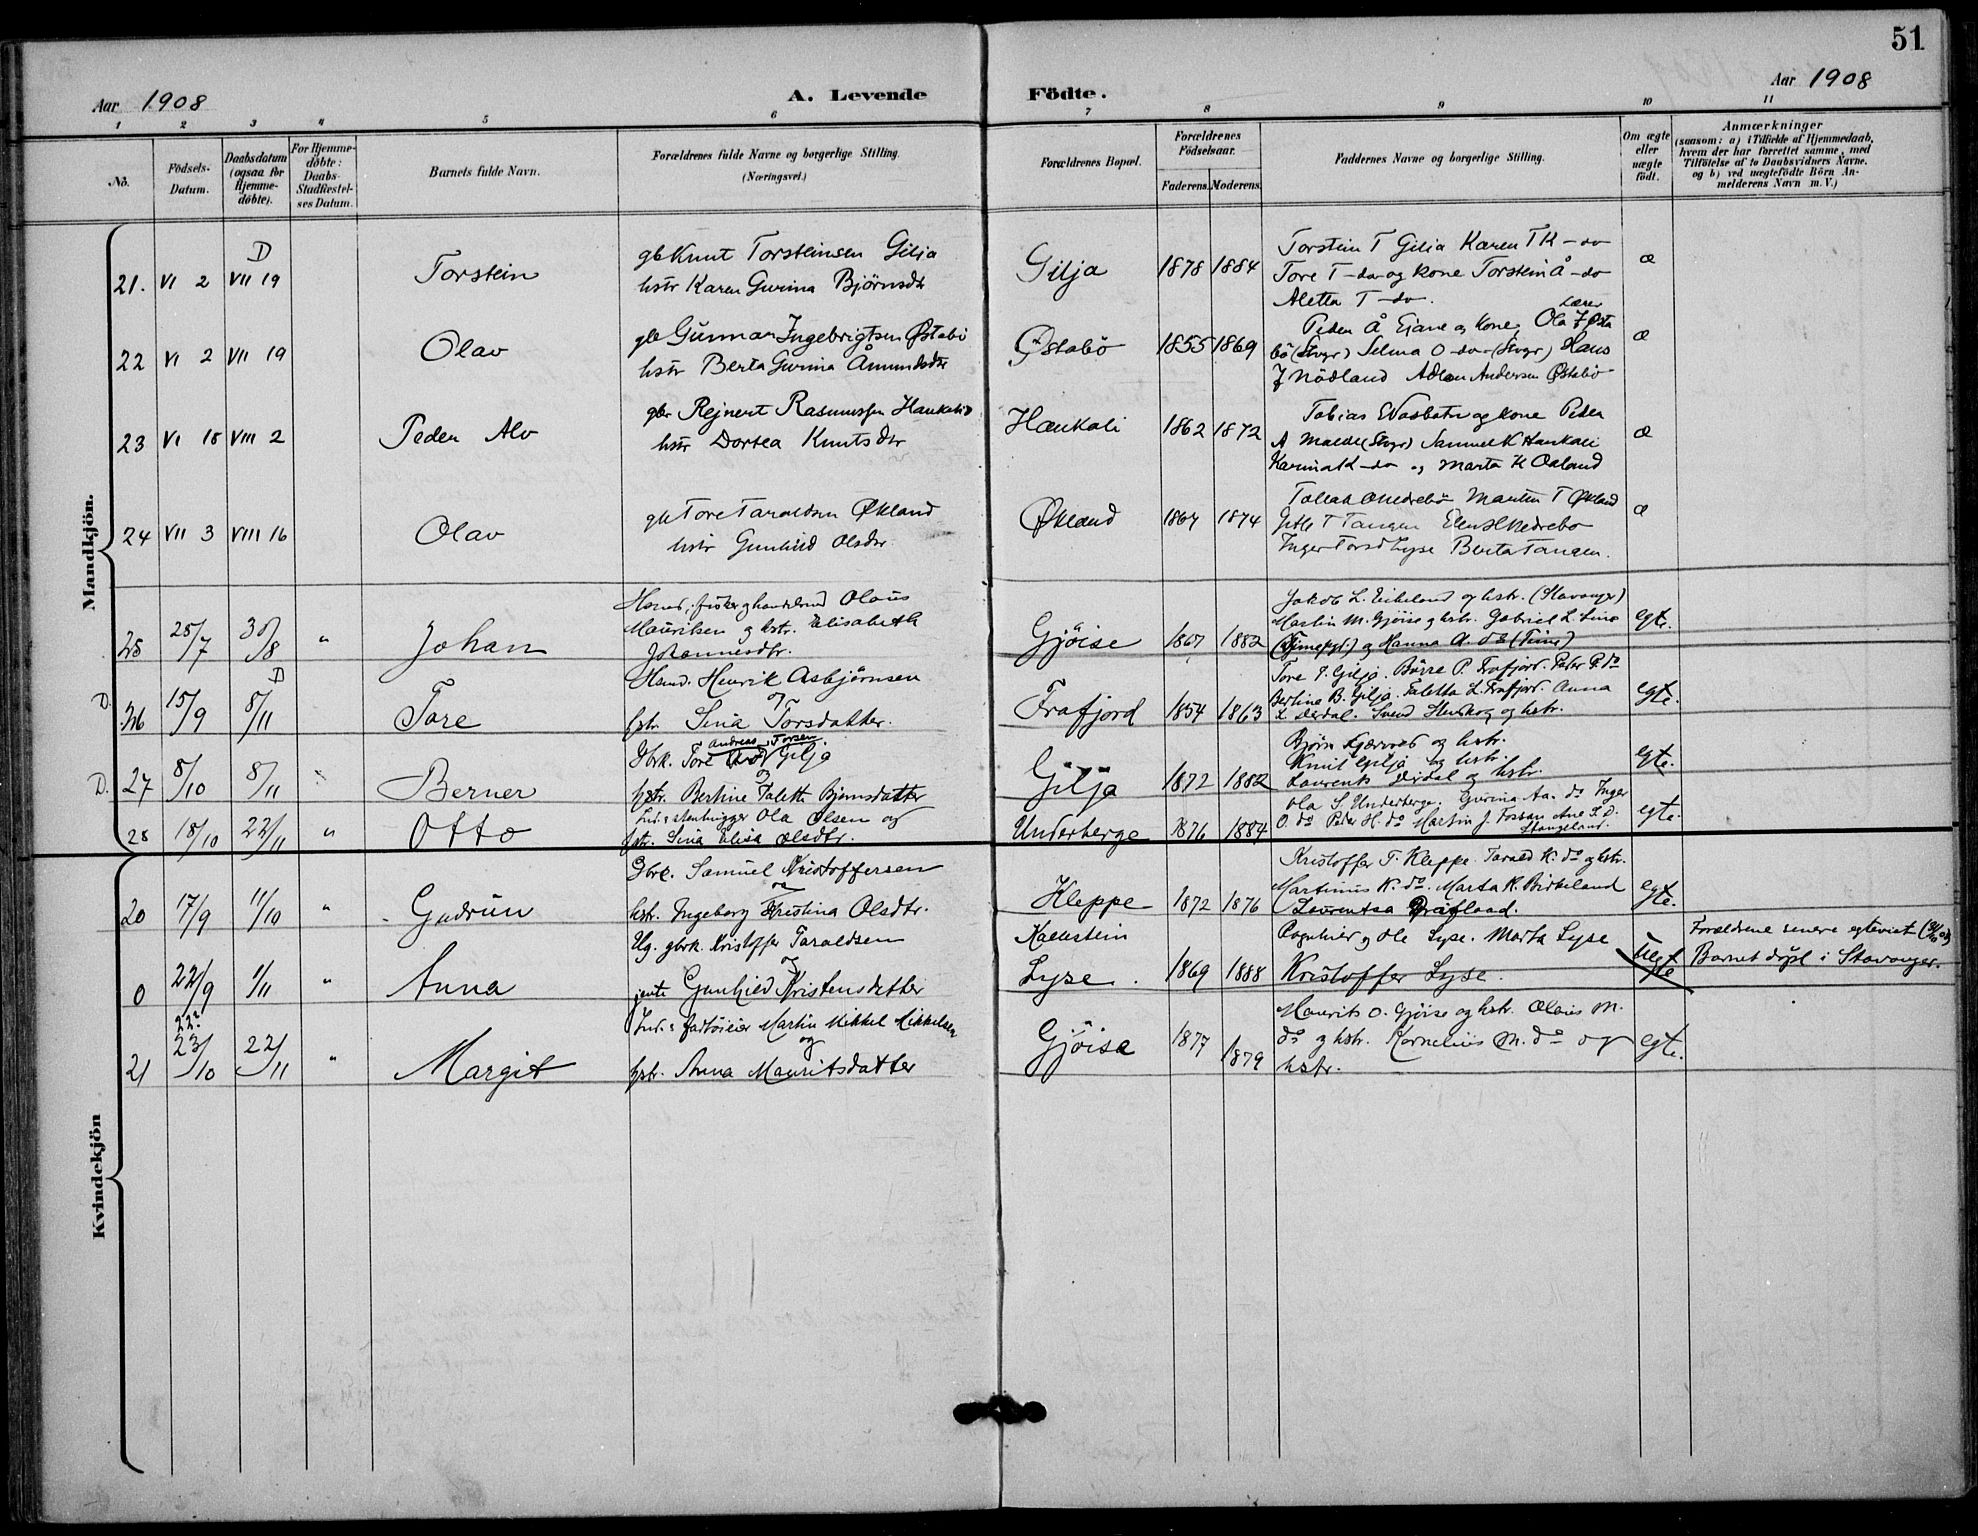 51
Aar 1908 A. Levende Födte. Aar 1908
1 2 3 4 5 6 7 8 9 10 11
No.
Födsels-Datum.
Daabsdatum (ogsaa for Hjemme-döbte).
For Hjemme-döbte: Daabs-Stadfæstel-ses Datum.
Barnets fulde Navn.
Forældrenes fulde Navne og borgerlige Stilling. (Næringsvei.)
Forældrenes Bopæl.
Forældrenes Födselsaar.
Faderens. Moderens.
Faddernes Navne og borgerlige Stilling.
Om ægte eller uægte födt.
Anmærkninger
(saasom: a) i Tilfælde af Hjemmedaab, hvem der har forrettet samme, med Tilföielse af to Daabsvidners Navne. og b) ved uægtefödte Börn An-melderens Navn m. V.)
Mandkjön.
D
21. VI 2 VII 19 Torstein
gb Knut Torsteinsen Gilja
hstr Karen Gurina Björnsdtr
Gilja 1878 1884
Torstein T Gilja Karen TK - do
Tore T - do og kone Torstein Å - do
Aletta T - do.
æ
22 VI 2 VII 19 Olav
gb Gunnar Ingebrigtsen Østabö
hstr Berta Gurina Åmundsdtr
Østabö 1855 1869
Peder Å Ejane og kone, Ola J Østa
bö (Stvgr) Selma O - do - (Stvgr) Hans
J Nödland Adlan Andersen Østabö
æ
23 VI 18 VIII 2 Peder Alv
gbr Rejnert Rasmussen Haukali
hstr Dortea Knutsdtr
Haukali 1862 1872
Tobias og kone Peder
A Malde (Stvgr) Samuel K Haukali
Karina K - do og Marta K Oaland
æ
24 VII 3 VIII 16 Olav
gb Tore Taraldsen Økland
hstr Gunhild Olsdtr.
Økland 1867 1874
Tollak Medrebö Martin T Økland
Gitle T Tangen Medrebo
Inger Torsd Lyse Berta Tangen.
æ
25 25/7 30/8 " Johan
Hsmd, fisker og handelsmd Olaus
Mauritsen og hstr. Elisabeth
Johannesdtr.
Gjöise 1867 1882
Jakob L. Eikeland og hstr. (Stavanger)
Martin M. Gjöise og hstr. Gabriel L. Line
(Timepgl.) og Hanna A. do (Time)
egte.
D. 26 15/9 8/11 D Tore
Hsmd. Henrik Asbjörnsen
og
hstr. Sina Torsdatter.
Frafjord 1854 1863
Tore T. Gilja. Börre P. Frafjord. Peder P. do
Bertine B. Gilja. Taletta L. Frafjord. Anna
L. Dirdal. Svend Stenskog og hstr.
egte.
D. 27 8/10 8/11 " Berner
Gbrk. Tore Andreas Torsen Gilja
og
hstr. Bertine Taletta Bjørnsdatter
Gilja 1872 1882
Bjørn Kjærvol og hstr.
Knut Gilja og hstr.
Laurents Dirdal og hstr.
egte.
28 18/10 22/11 " Otto
Ind. stenhugger Ola Olsen og
hstr. Sina Elisa Olsdtr.
Underberge 1876 1884
Ola S. Underberge. Gurina Aa. do Inger
O. do Peder H. do Martin J. Fossan Ane S. D.
Stangeland.
egte.
Kvindekjön
20 17/9 11/10 " Gudrun
Gbrk. Samuel Kristoffersen
og
hstr. Ingeborg Kristina Olsdtr.
Kleppe 1872 1876
Kristoffer T. Kleppe. Tarald K. do og hstr.
Martinus K. do. Marta K. Birkeland
Laurentsa Gräflaad.
egte.
0 22/9 1/11 " Anna
Ug. gbrk. Kristoffer Taraldsen
og
jente Gunhild Kristensdatter
Kallestein
Lyse. 1869 1888
Ragnhild og Ole Lyse. Marta Lyse
Kristoffer Lyse.
Uegte
Forældrene senere egteviet
Barnet döpt i Stavanger.
22?
21 23/10 22/11 " Margit
Ind. fartöieier Martin Mikkel Mikkelsen
og
hstr. Anna Mauritsdatter
Gjöise 1877 1879
Maurits O. Gjöise og hstr. Olaus M.
do og hstr. Kornelius M. do og
hstr.
egte.